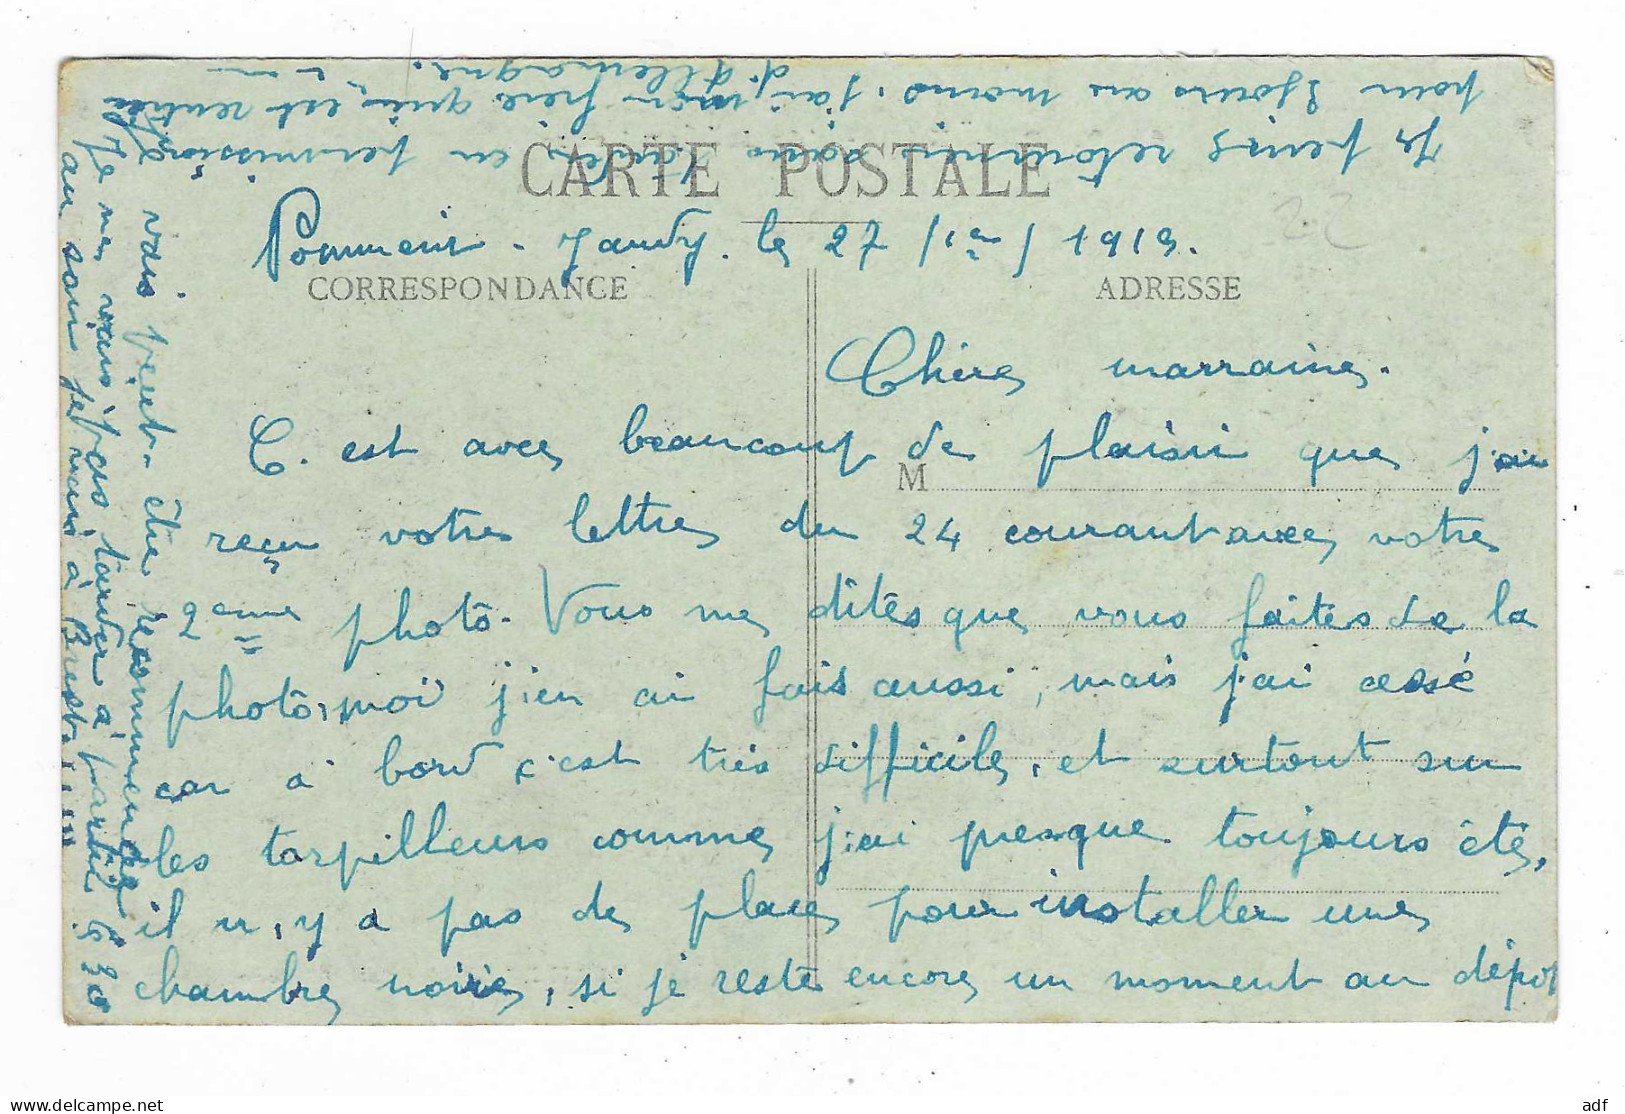 CARTE POSTALE
Pommerit-Jaudy. le 27 / 1er / 1919.
CORRESPONDANCE
ADRESSE
M
Chère marraine.
C'est avec beaucoup de plaisir que j'ai
reçu votre lettre du 24 courant avec votre
2eme photo. Vous me dites que vous faites de la
photo, moi j'en ai fais aussi, mais j'ai cessé
car à bord c'est très difficile, et surtout sur
les torpilleurs comme j'ai presque toujours été,
il n'y a pas de place pour installer une
chambre noire, si je reste encore un moment au dépôt
je vais peut-être recommencer
Je ne vais pas tarder à partir le 30
au soir je serai à Brest
Je pense retourner en permission
pour 3 jours au moins, j'ai mon frère qui est rentré
d'Allemagne.
22
delcampe.net
adf